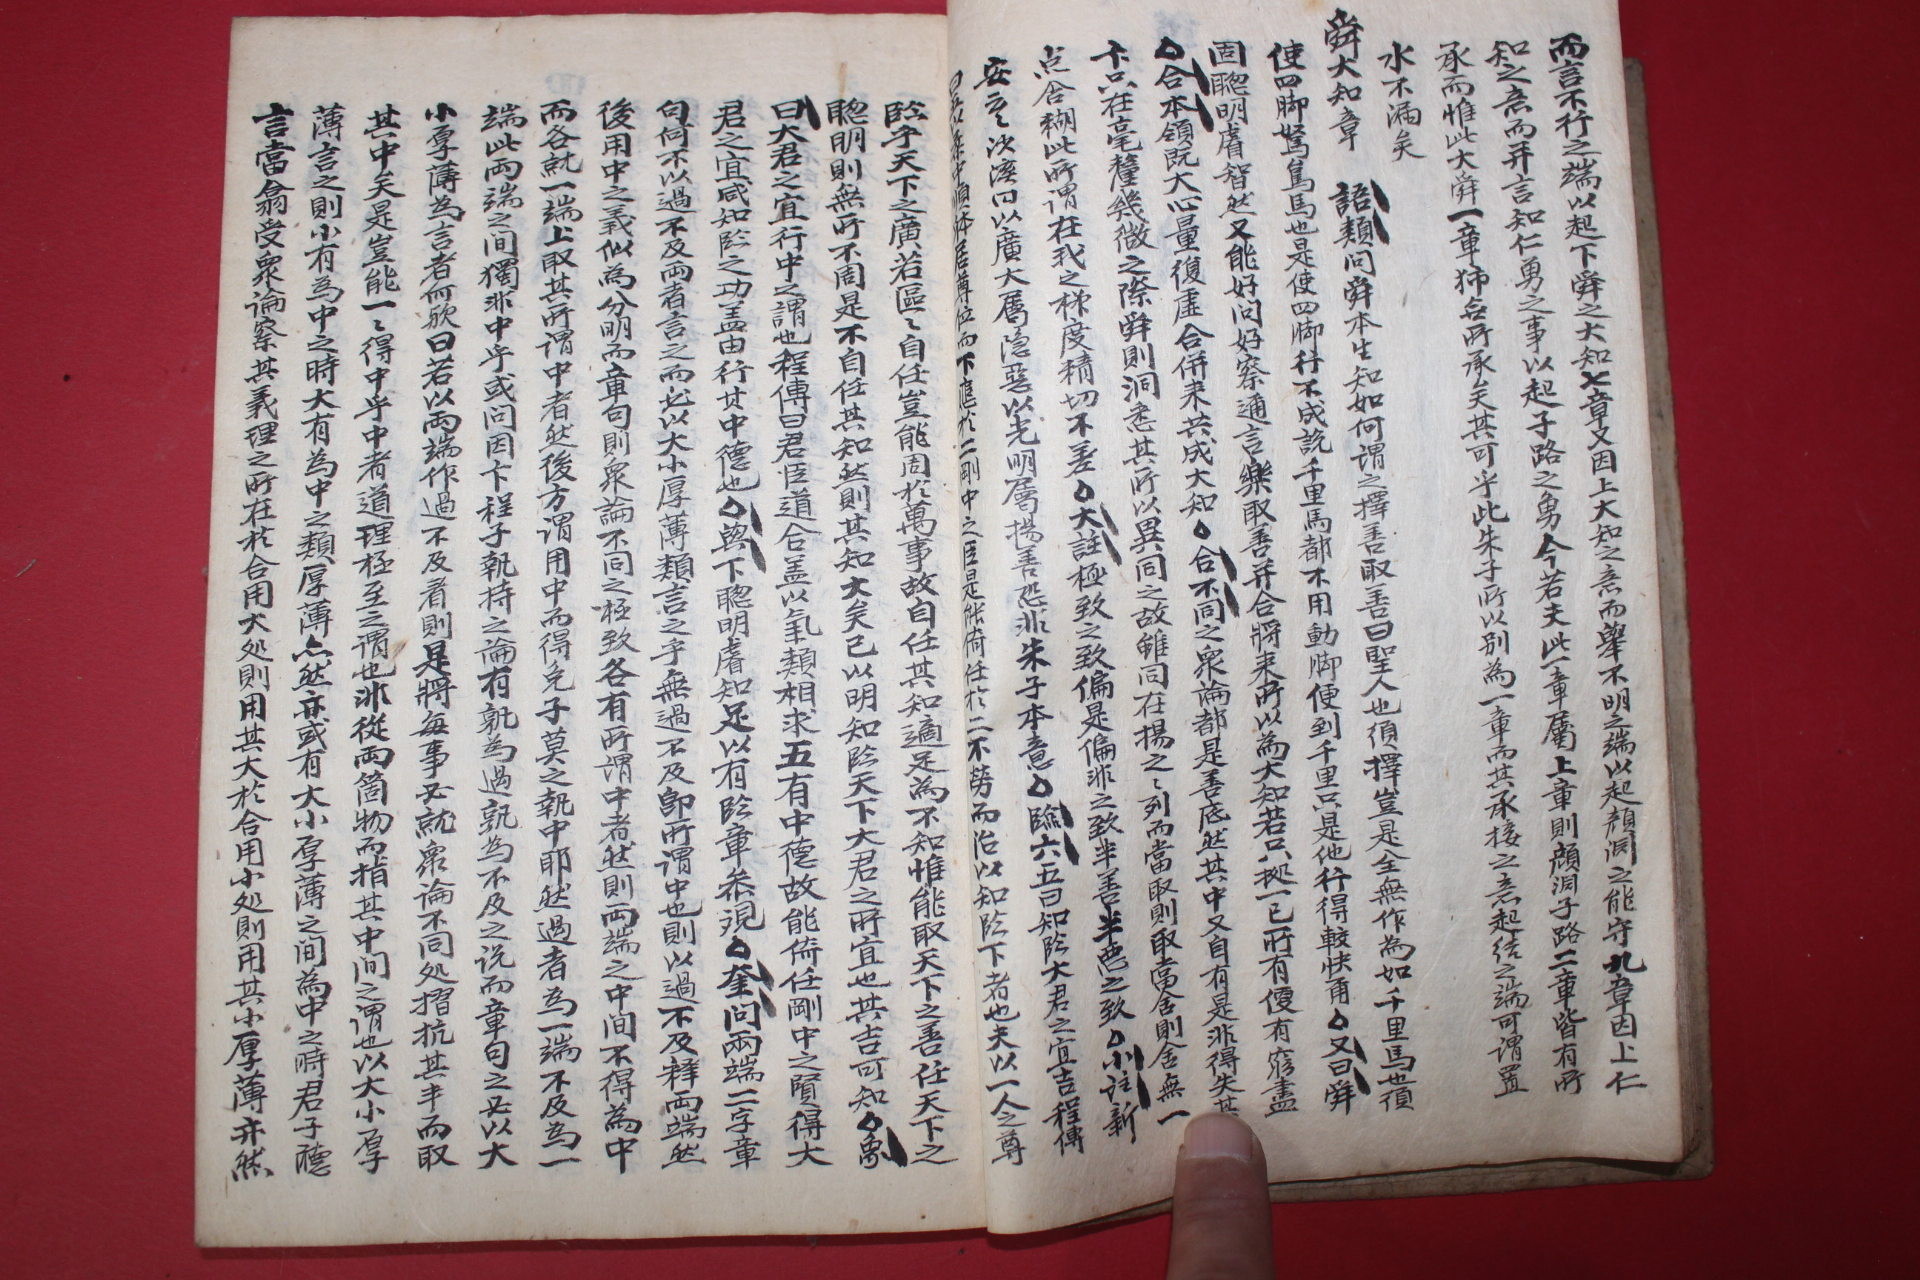 而言不行之端以起下舜之大知七章又因上大知之意而舉不明之端以起顏淵之能守九章因上仁
知之意而并言知仁勇之事以起子路之勇今若夫此一章屬上章則顏淵子路二章皆有所
承而惟此大舜一章獨無所承矣其可乎此朱子所以別為一章而其承接之意起結之端可謂置
水不漏矣
舜大知章
語類問舜本生知如何謂之擇善取善曰聖人也須擇豈是全無作為如千里馬也須
使四脚駑馬也是使四脚行不成說千里馬都不用動脚便到千里只是他行得較快甬 又曰舜
固聰明睿智然又能好問好察邇言樂取善并合將来所以為大知若只拠一己所有便有窮盡
合本領既大心量復虛合併来共成大知 合不同之衆論都是善底然其中又自有是非得失其
不只在毫釐幾微之際舜則洞悉其所以異同之故雖同在揚之之列而當取則取當舍則舍無一
点含糊此所謂在我之称度精切不差 大註極致之致偏是偏非之致半善半惡之致 小註新
安之說
曰以廣大屬隱惡以光明屬揚善恐非朱子本意 臨六五曰知臨大君之宜吉程傳
曰五以柔中順體居尊位而下應於二剛中之臣是能倚任於二不勞而治以知臨下者也夫以一人之尊
臨乎天下之廣若區〻自任豈能周於萬事故自任其知適足為不知惟能取天下之善任天下之
聰明則無所不周是不自任其知然則其知大矣已以明知臨天下大君之所宜也其吉可知 象
曰大君之宜行中之謂也程傳曰君臣道合盖以氣類相求五有中德故能倚任剛中之賢得大
君之宜咸知臨之功盖由行其中德也 與下聰明睿知足以有臨章叅現 奎問兩端二字章
句何不以過不及兩者言之而必以大小厚薄類言之乎無過不及卽所謂中也則以過不及釋兩端然
後用中之義似為分明而章句則衆論不同之極致各有所謂中者然則兩端之中间不得為中
而各就一端上取其所謂中者然後方謂用中而得免子莫之執中耶然過者為一端不及為一
端此兩端之间獨非中乎或问因卞程子執持之論有孰為過孰為不及之說而章句之必以大
小厚薄為言者何歟曰若以兩端作過不及看則是將每事必就衆論不同処摺抗其半而取
其中矣是豈能一〻得中乎中者道理極至之謂也非從兩箇物而指其中间之謂也以大小厚
薄言之則小有為中之時大有為中之類厚薄亦然亦或有大小厚薄之间為中之時君子聽
言當翕受衆論察其義理之所在於合用大処則用其大於合用小処則用其小厚薄亦然